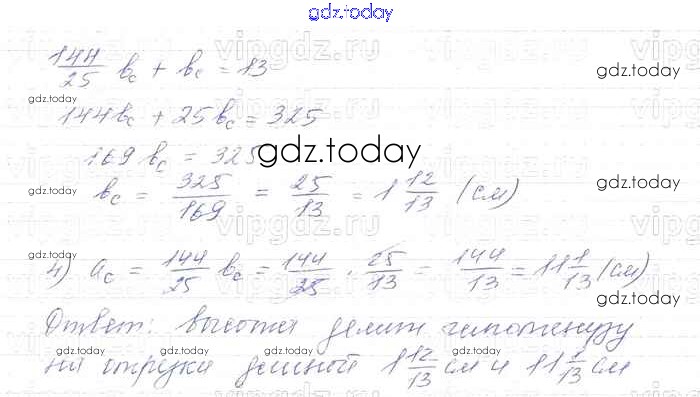 gdz.today
144/25 b_c + b_c = 13
gdz.today
gdz.today
144b_c + 25b_c = 325
169 b_c = 325
gdz.today
b_c = 325/169 = 25/13 = 1 12/13 (см)
gdz.today
gdz.today
vipgdz.ru
gdz.today
4) a_c = 144/25 b_c = 144/25 · 25/13 = 144/13 = 11 1/13 (см)
gdz.today
Ответ: высота делит гипотенузу
gdz.today
gdz.today
gdz.today
на отрезки длиной 1 12/13 см и 11 1/13 см